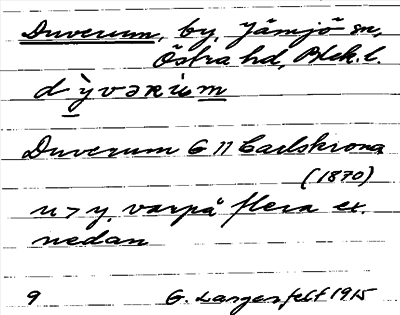 Duverum, by, Jämjö sn,
Östra hd, Blek. l.
Duverum G 11 Carlskrona
(1870)
u > y, varpå flera ex.
nedan
9 G. Langenfelt 1915